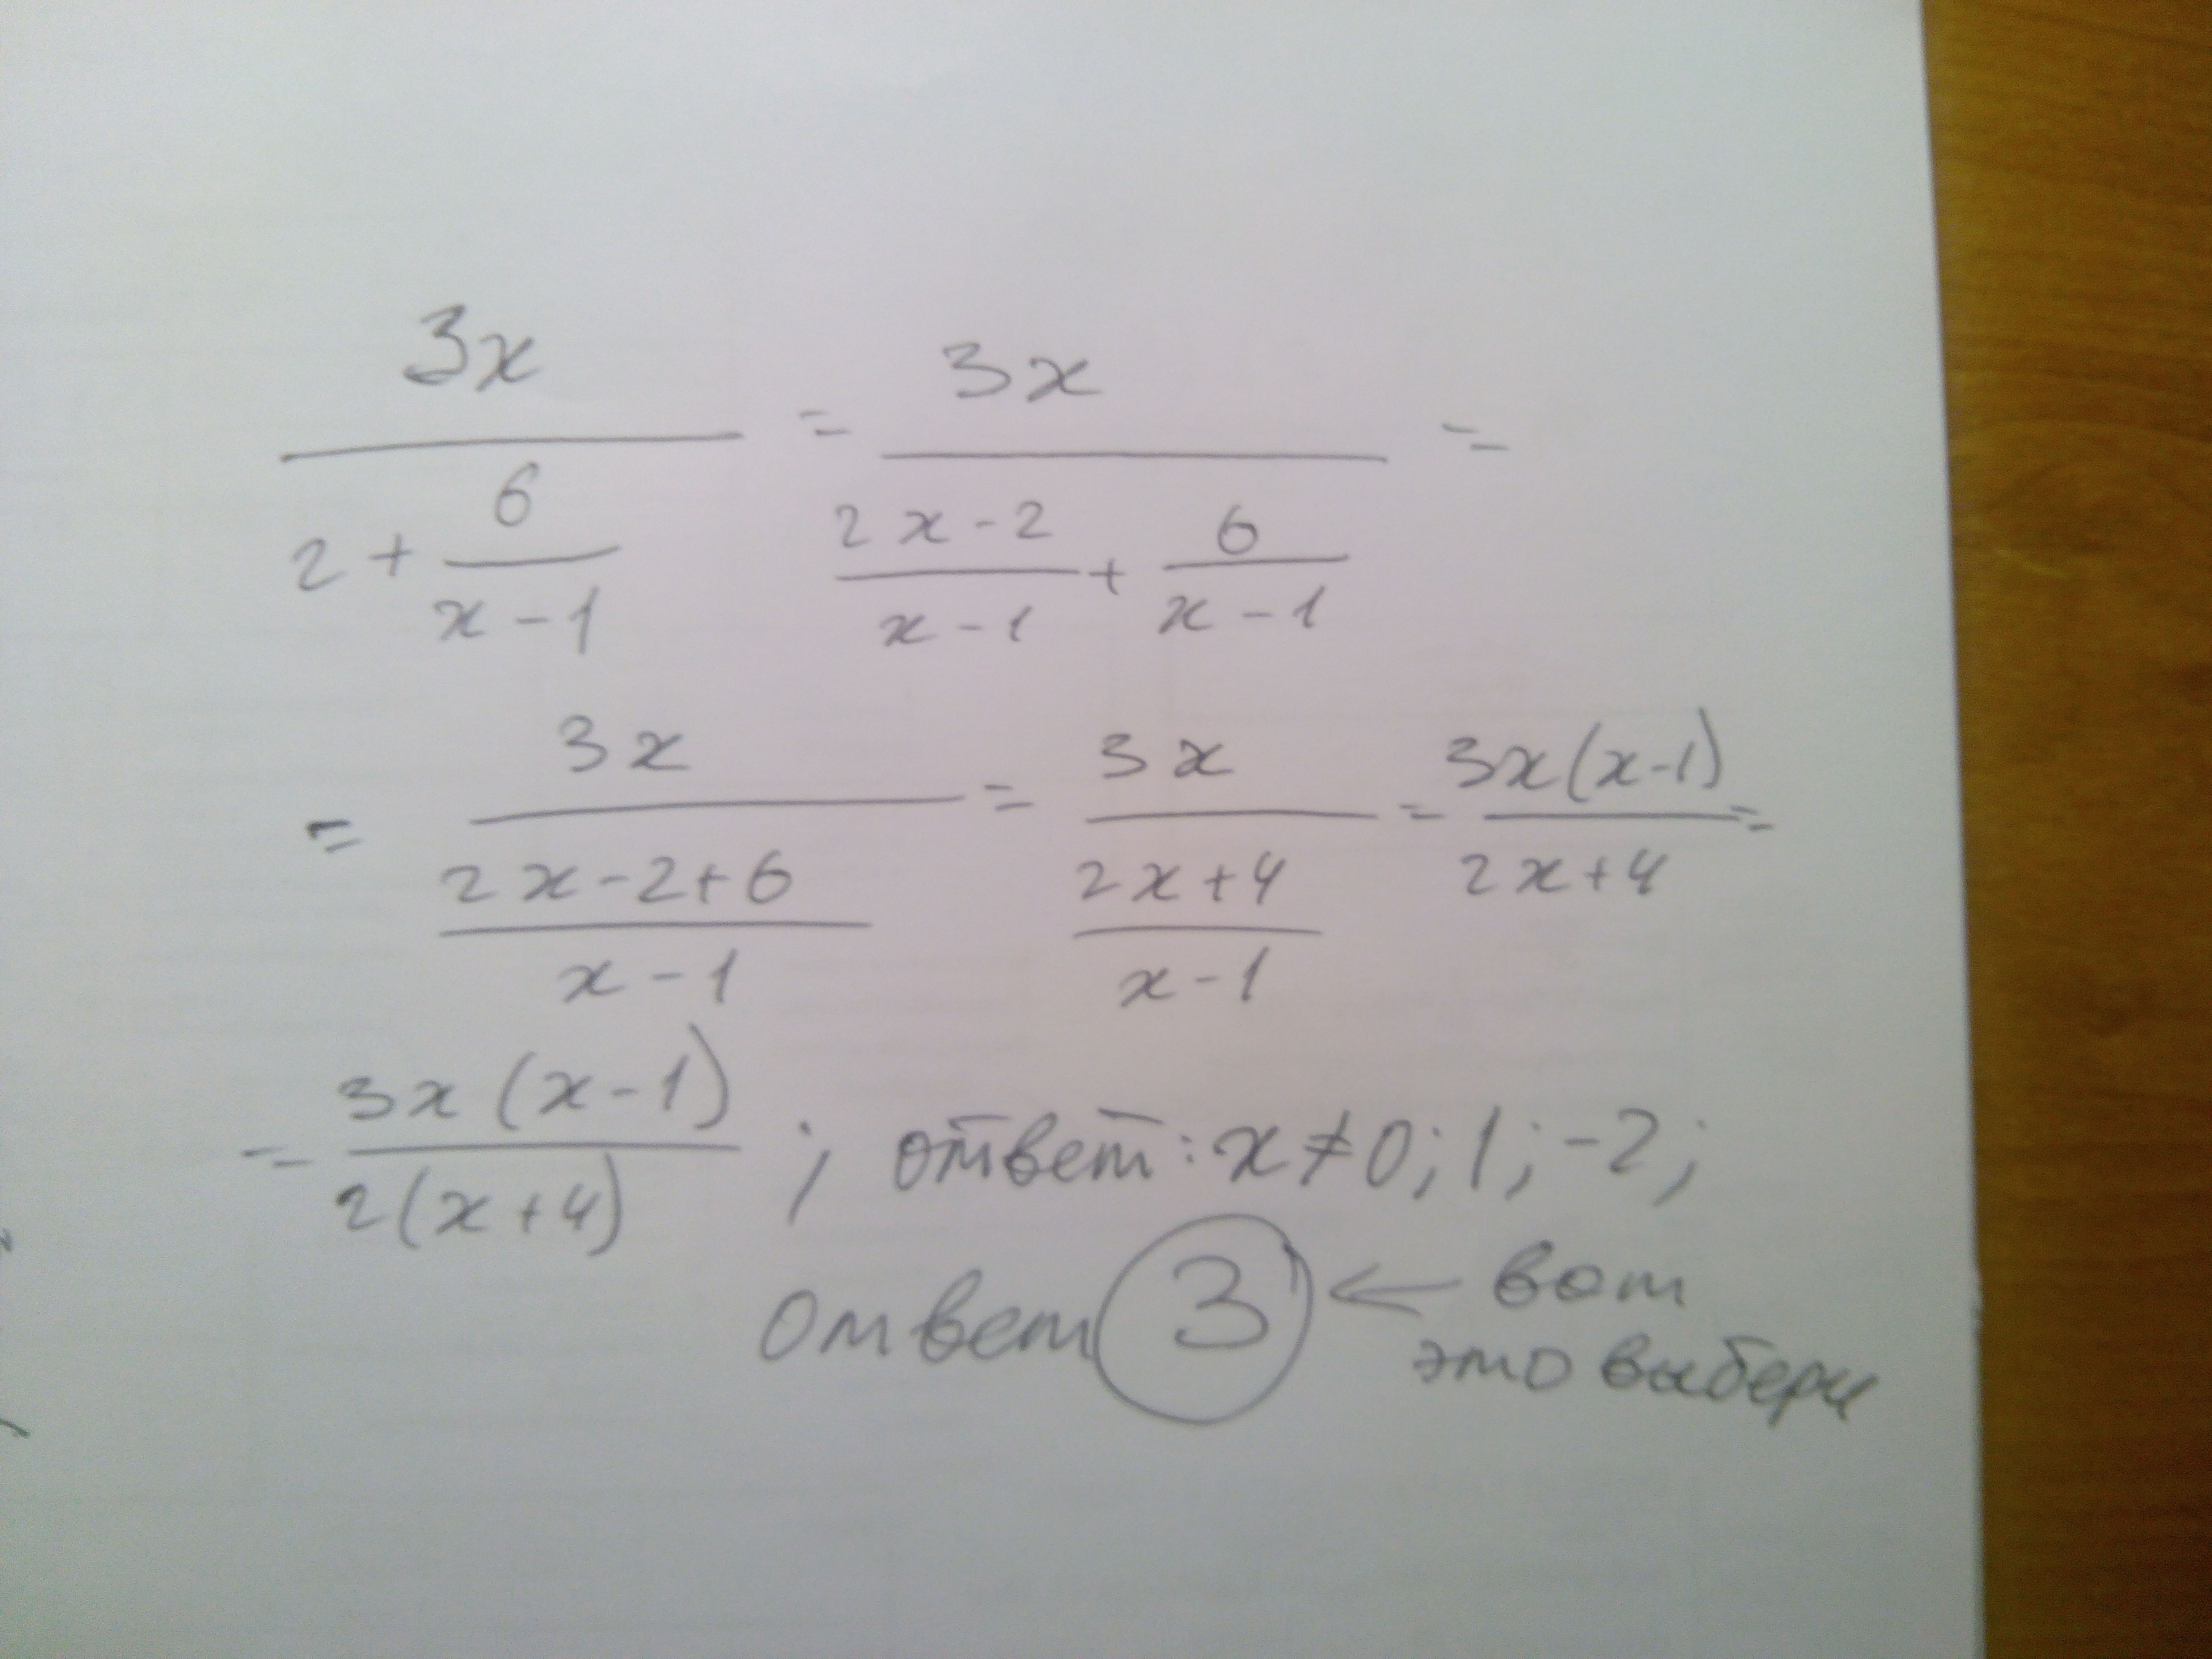 3x / (2 + 6/(x-1)) = 3x / ((2x-2)/(x-1) + 6/(x-1)) =
= 3x / ((2x-2+6)/(x-1)) = 3x / ((2x+4)/(x-1)) = 3x(x-1) / (2x+4) =
= 3x(x-1) / (2(x+4)) ; ответ: x≠0; 1; -2;
ответ 3 ← вот
это выбери